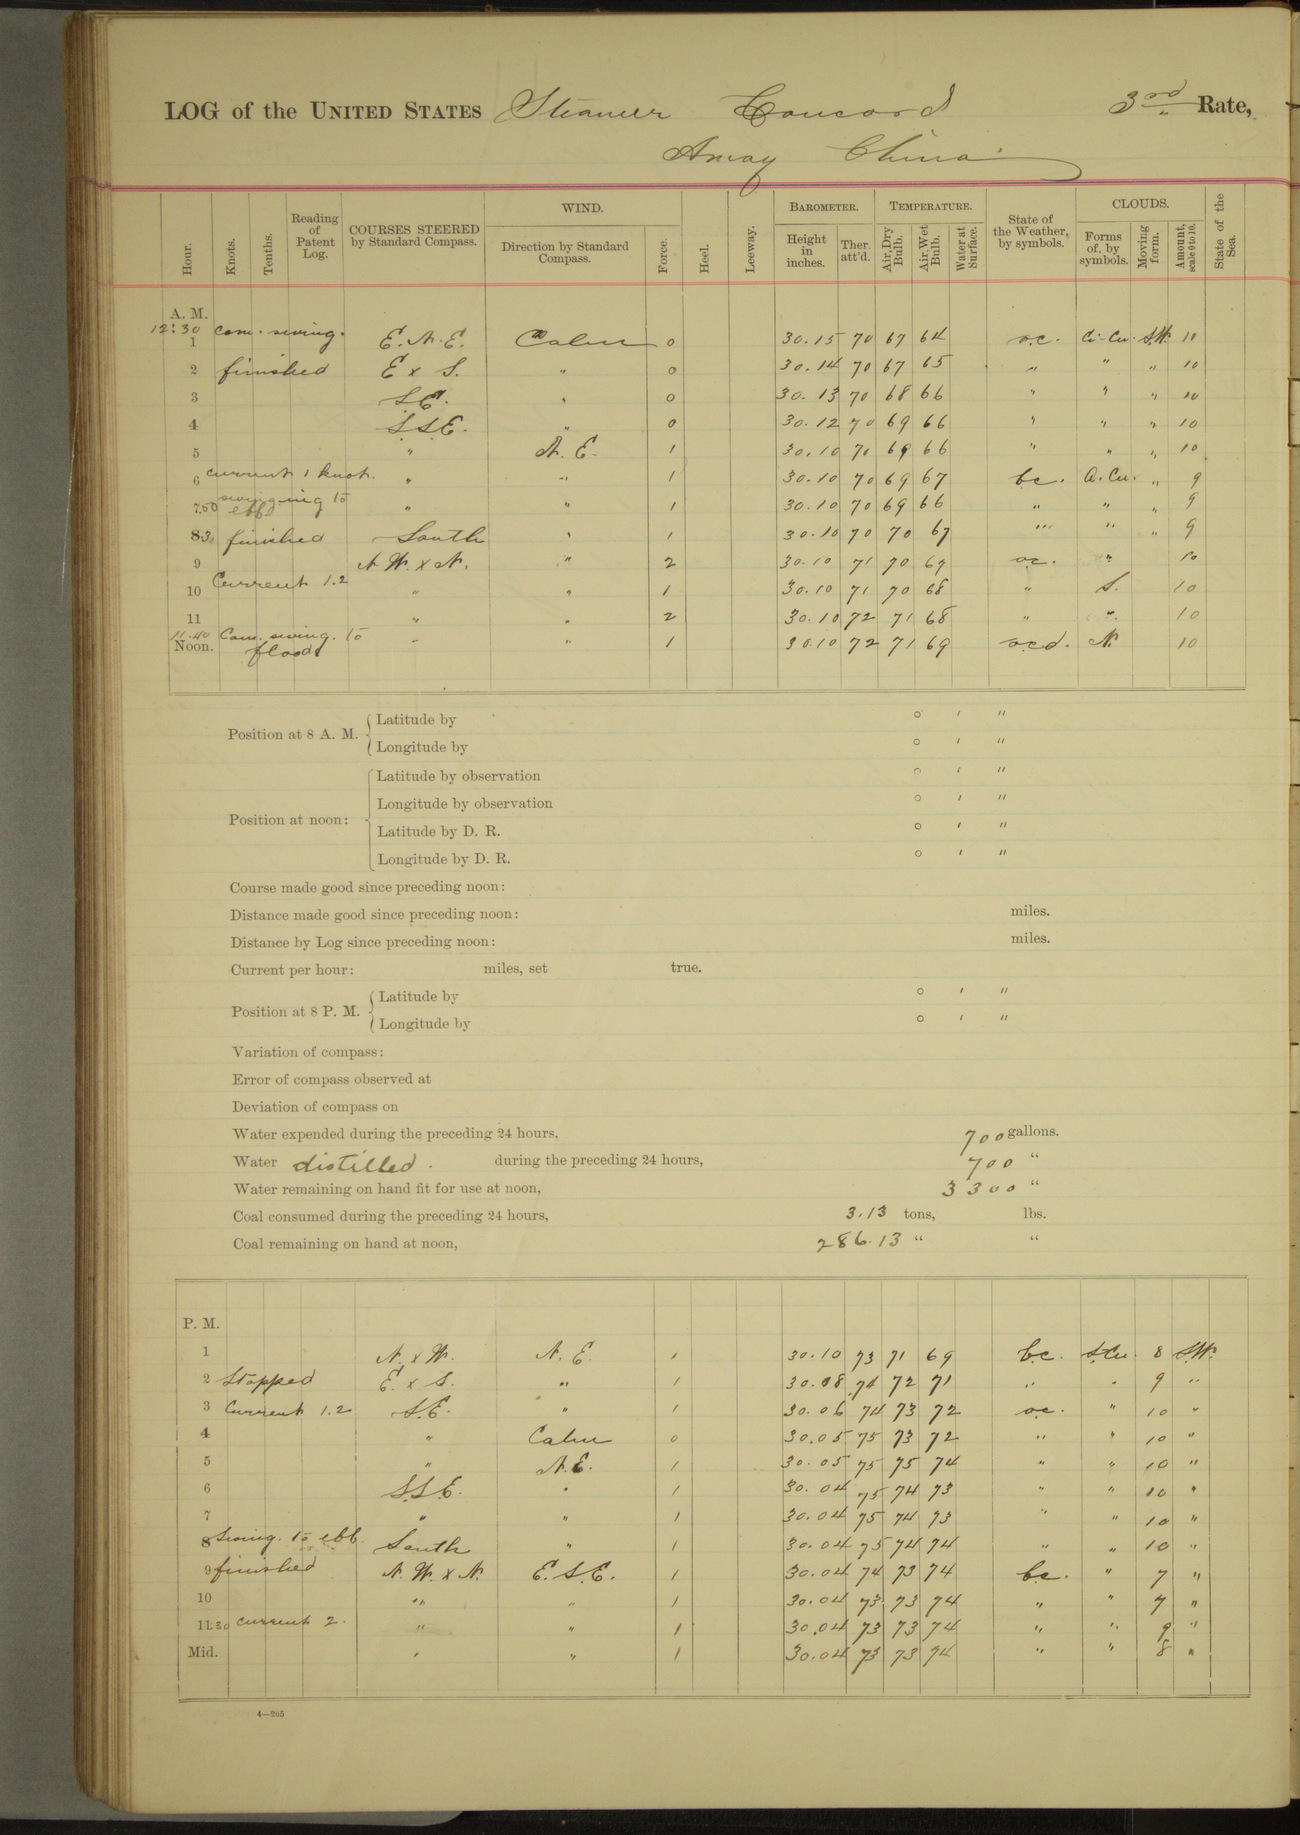 LOG of the UNITED STATES Steamer Concord 3rd Rate,
Amoy China
Hour. Knots. Tenths. Reading of Patent Log. COURSES STEERED by Standard Compass. WIND. Direction by Standard Compass. Force. Heel. Leeway. BAROMETER. Height in inches. Ther. att'd. TEMPERATURE. Air, Dry Bulb. Air, Wet Bulb. Water at Surface. State of the Weather, by symbols. CLOUDS. Forms of, by symbols. Moving form. Amount, scale 0 to 10. State of the Sea.
A. M.
12:30 com. swing.
1 E. N. E. Calm 0 30.15 70 67 64 o.c. Ci-Cu. S.W. 10
2 finished E x S. " 0 30.14 70 67 65 " " " 10
3 S.E. " 0 30.13 70 68 66 " " " 10
4 S.S.E. " 0 30.12 70 69 66 " " " 10
5 " N. E. 1 30.10 70 69 66 " " " 10
6 current 1 knot. " " 1 30.10 70 69 67 b.c. A. Cu. " 9
7.50 swinging to ebb " " 1 30.10 70 69 66 " " " 9
8 30 finished South " 1 30.10 70 70 67 " " " 9
9 N. W. x N. " 2 30.10 71 70 69 o.c. " 10
10 Current 1.2 " " 1 30.10 71 70 68 " S. 10
11 " " 2 30.10 72 71 68 " " 10
11.40 Com. swing. to
Noon. flood " " 1 30.10 72 71 69 o.c.d. N. 10
Position at 8 A. M. Latitude by ° ' "
Longitude by ° ' "
Position at noon: Latitude by observation ° ' "
Longitude by observation ° ' "
Latitude by D. R. ° ' "
Longitude by D. R. ° ' "
Course made good since preceding noon:
Distance made good since preceding noon: miles.
Distance by Log since preceding noon: miles.
Current per hour: miles, set true.
Position at 8 P. M. Latitude by ° ' "
Longitude by ° ' "
Variation of compass:
Error of compass observed at
Deviation of compass on
Water expended during the preceding 24 hours, 700 gallons.
Water distilled. during the preceding 24 hours, 700 "
Water remaining on hand fit for use at noon, 3300 "
Coal consumed during the preceding 24 hours, 3.13 tons, lbs.
Coal remaining on hand at noon, 286.13 " "
P. M.
1 N. x W. N. E. 1 30.10 73 71 69 b.c. S.Cu. 8 S.W.
2 Stopped E. x S. " 1 30.08 74 72 71 " " 9 "
3 Current 1.2 S.E. " 1 30.06 74 73 72 o.c. " 10 "
4 " Calm 0 30.05 75 73 72 " " 10 "
5 " N.E. 1 30.05 75 75 74 " " 10 "
6 S.S.E. " 1 30.04 75 74 73 " " 10 "
7 " " 1 30.04 75 74 73 " " 10 "
8 Swing. to ebb. South " 1 30.04 75 74 74 " " 10 "
9 finished N. W. x N. E. S.E. 1 30.04 74 73 74 b.c. " 7 "
10 " " 1 30.04 73 73 74 " " 7 "
11.30 current 2. " " 1 30.04 73 73 74 " " 9 "
Mid. " " 1 30.04 73 73 74 " " 8 "
4—205